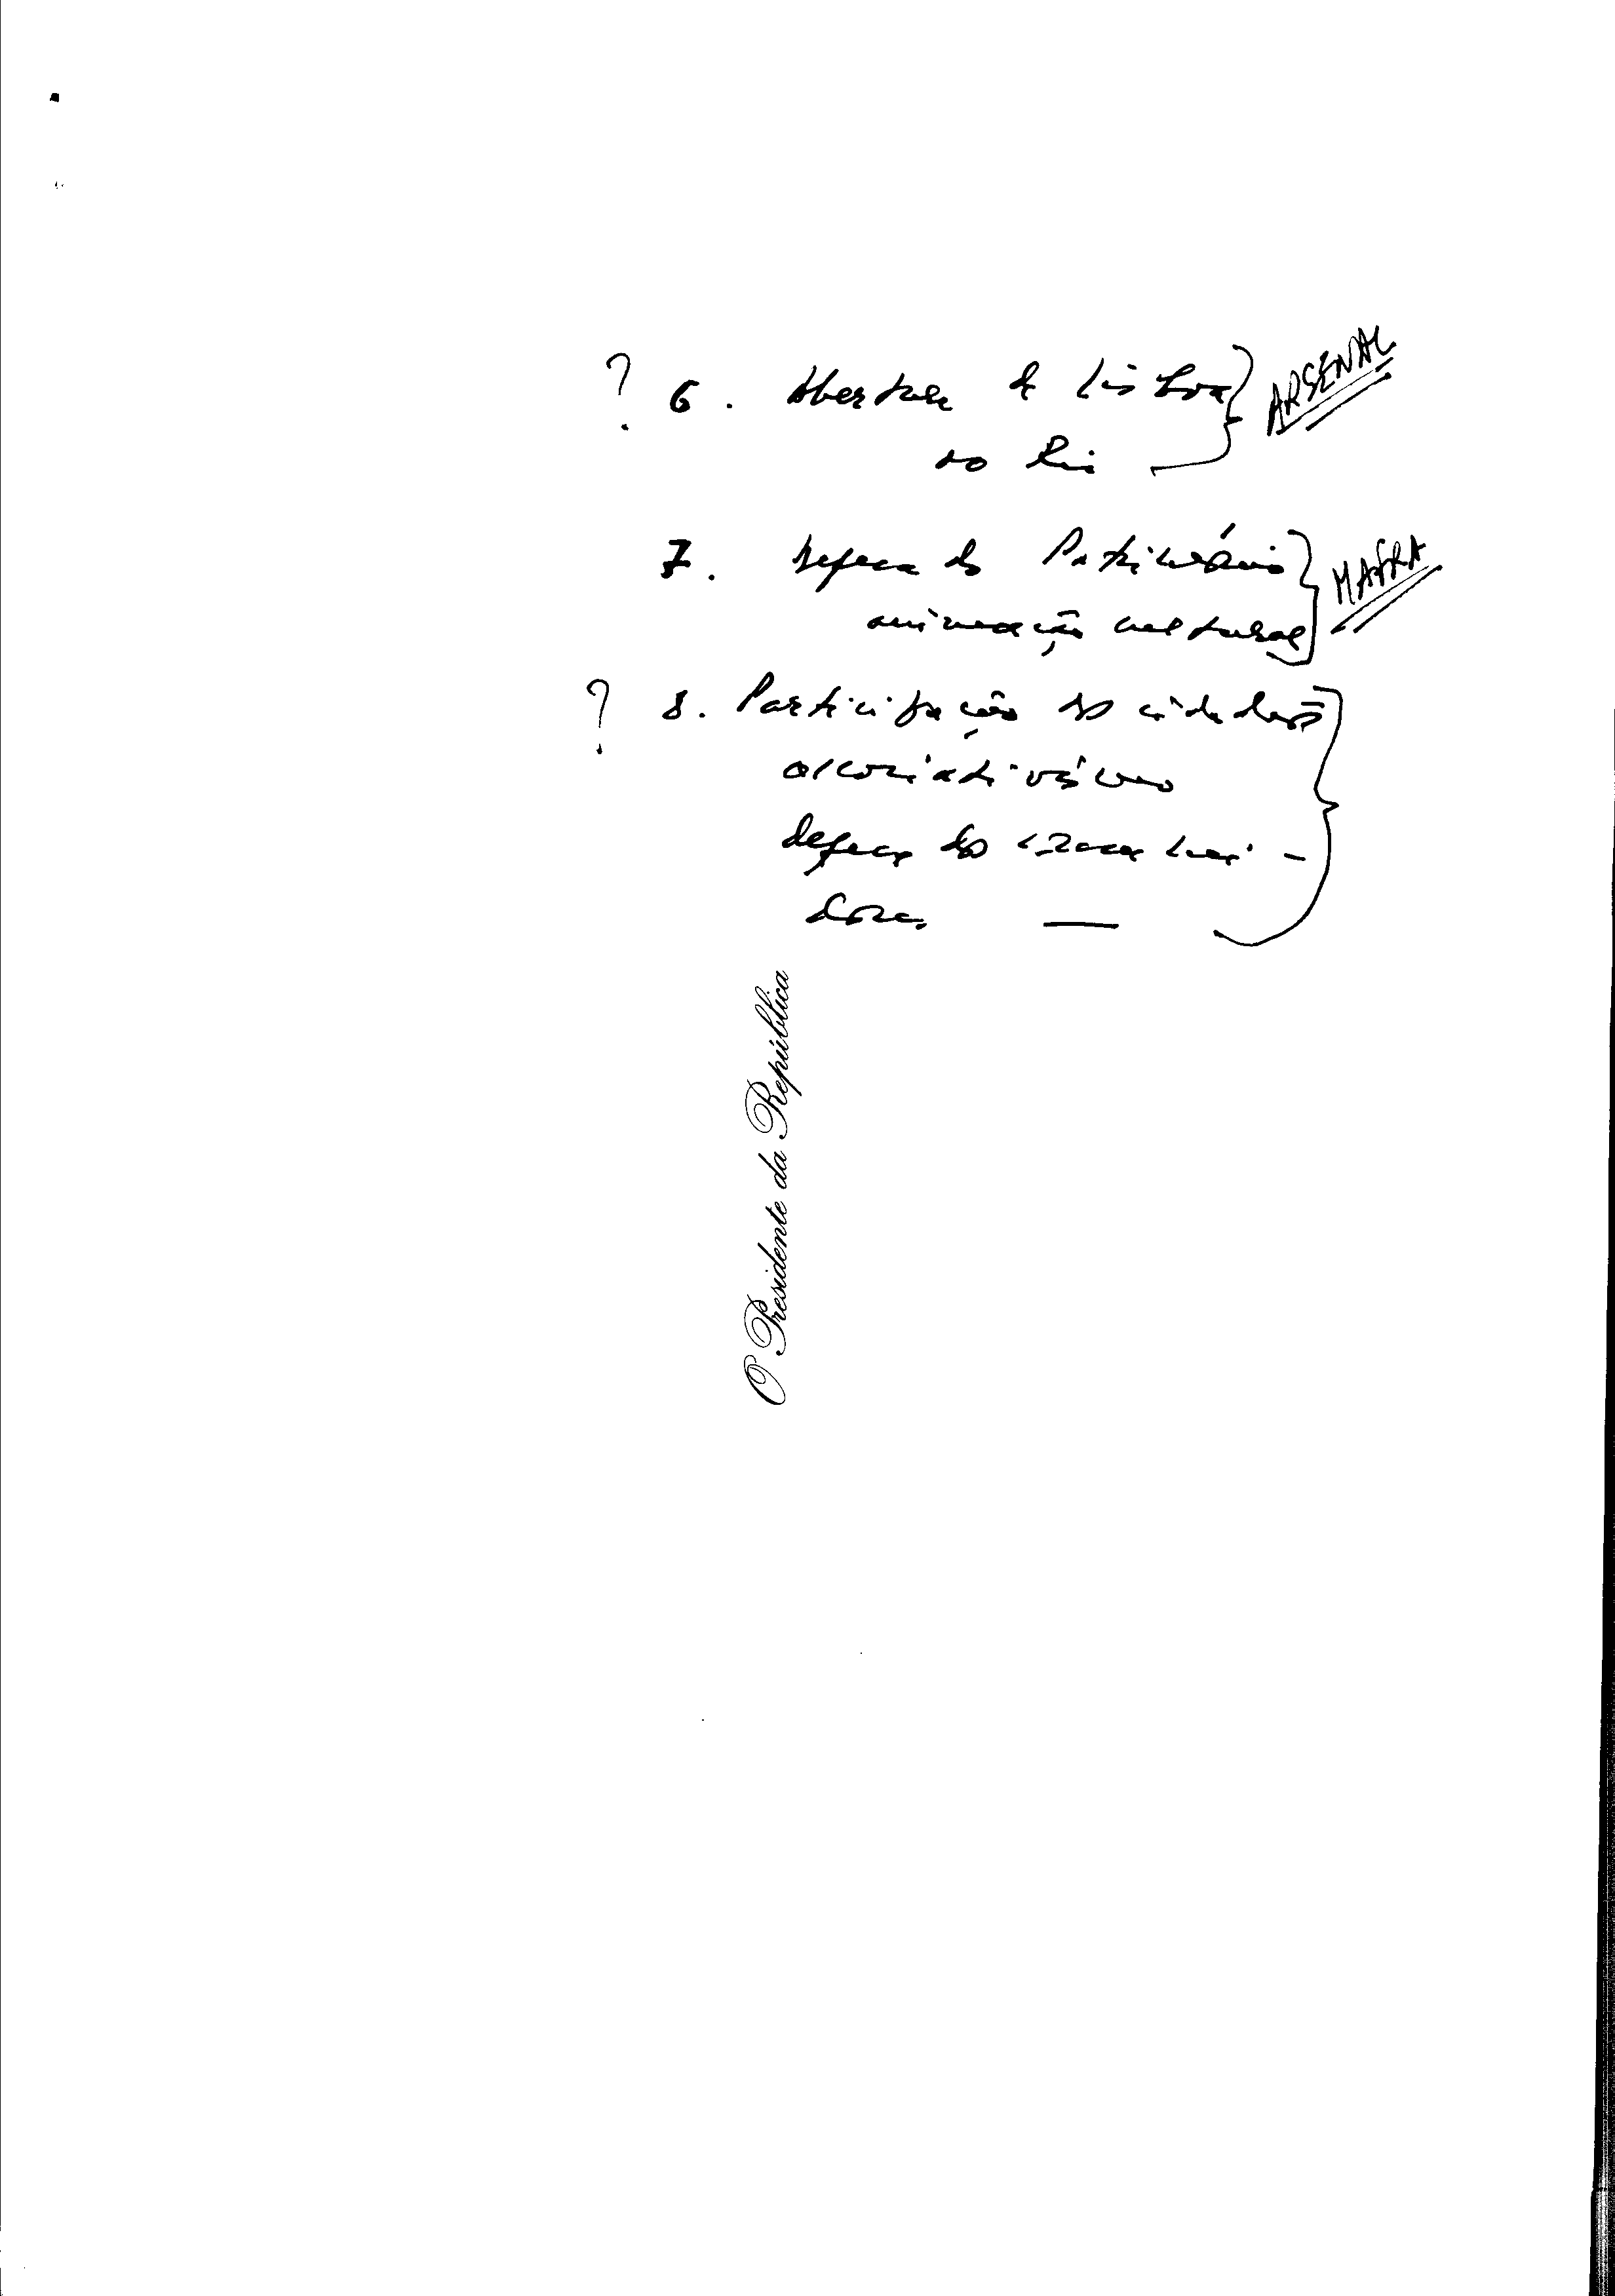 ? 6. Abertura de Lisboa
ao Rio
ARSENAL
7. Defesa do Património
animação cultural
MAFRA
? 8. Participação dos cidadãos
associativismo
defesa do
O Presidente da República